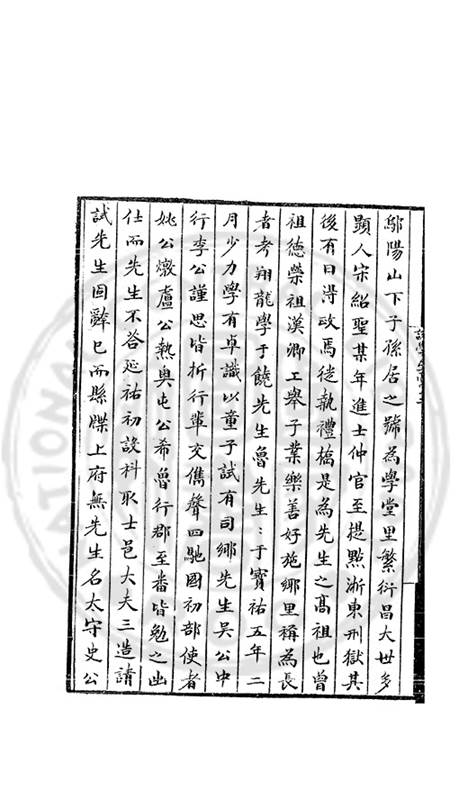 鄔陽山下子孫居之號為學堂里繁衍昌大世多
顕人宋紹聖某年進士仲官至提㸃浙東刑獄其
後有曰淂政馬徙執禮橋是為先生之髙祖也曾
祖德榮祖漢卿工舉子業樂善好施鄉里稱為長
者考翔龍學于饒先生魯先生:于寳祐五年二
月少力學有卓識以童子試有司鄉先生吳公中
行李公謹思皆折行輩交雋聲四馳國初部使者
姚公燉盧公執奧屯公希魯行郡至番皆勉之出
仕而先生不答延祐初設科取士邑大夫三造請
試先生固辭已而縣牒上府無先生名太守史公